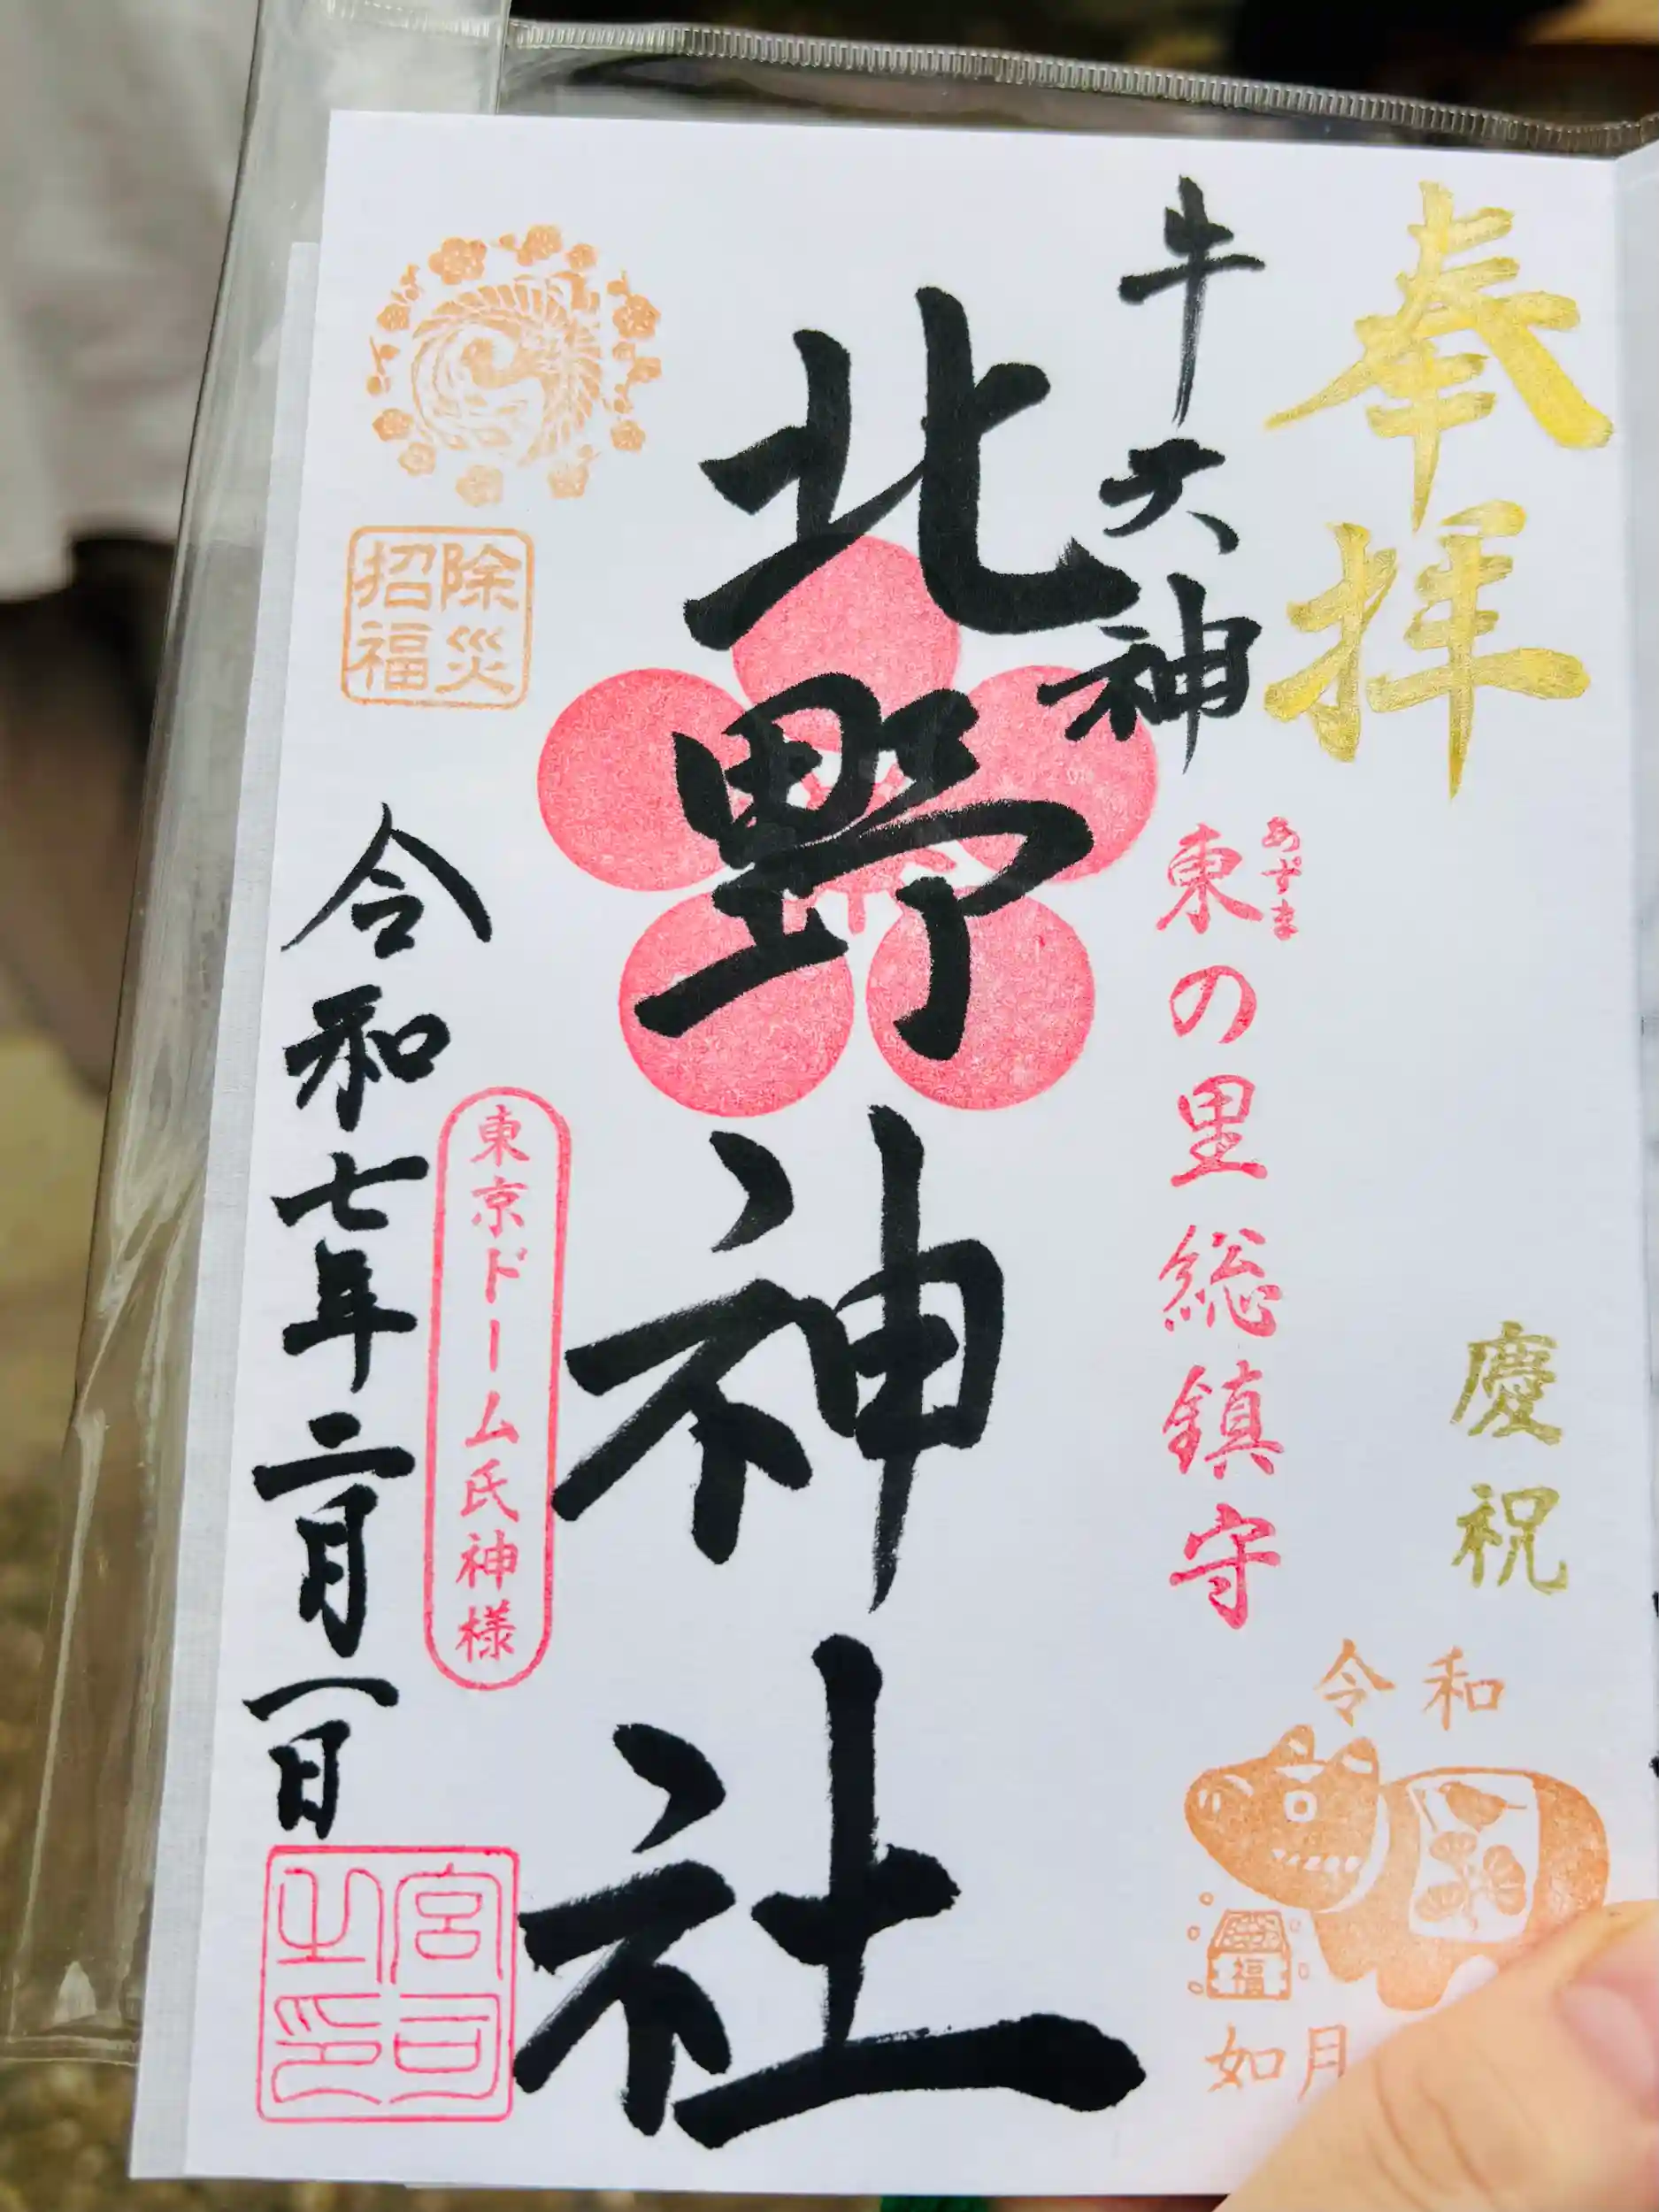 奉拝
慶祝
令和
福
如月
牛天神
あずま
東の里総鎮守
北野神社
東京ドーム氏神様
除災
招福
令和七年二月一日
宮司
之印